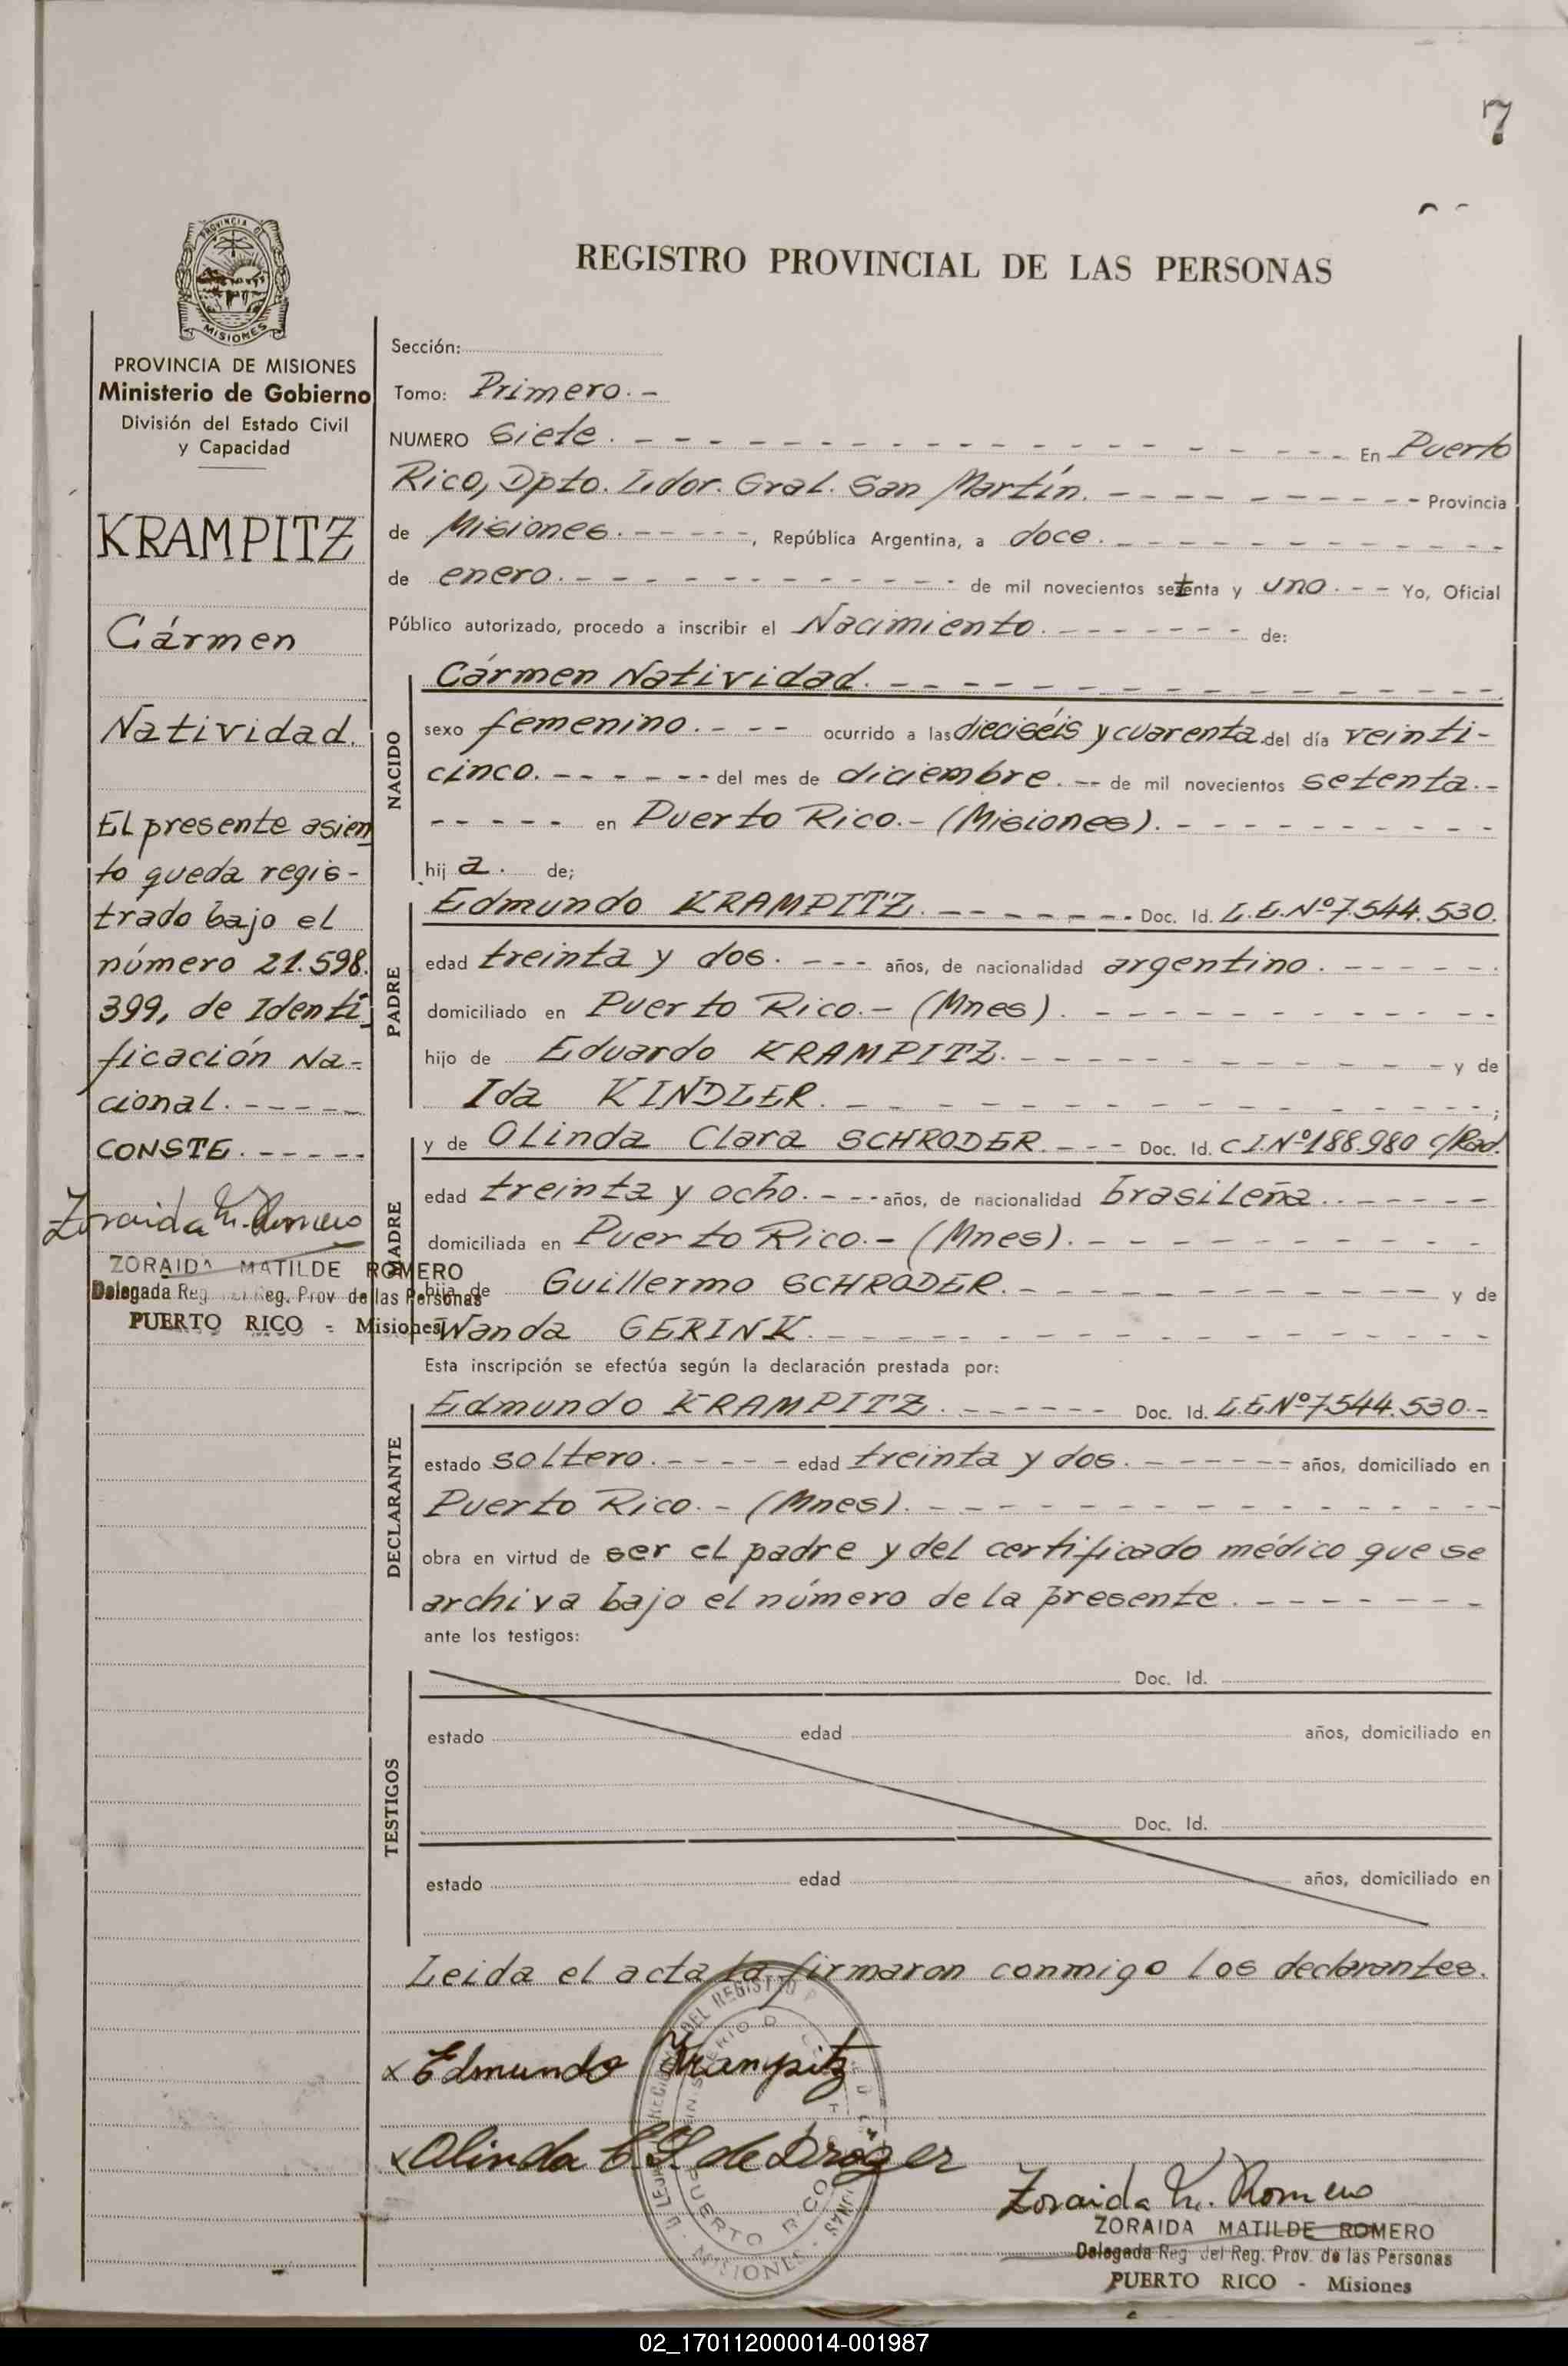 7
PROVINCIA DE
MISIONES
REGISTRO PROVINCIAL DE LAS PERSONAS
PROVINCIA DE MISIONES
Ministerio de Gobierno
División del Estado Civil
y Capacidad
KRAMPITZ
Cármen
Natividad.
El presente asien
to queda regis-
trado bajo el
número 21.598.
399, de Identi
ficación Na-
cional. - - - - -
CONSTE. - - - - -
Zoraida M. Romero
ZORAIDA MATILDE ROMERO
Delegada Reg. del Reg. Prov de las Personas
PUERTO RICO - Misiones
Sección:
Tomo: Primero. -
NUMERO Siete. - - - - En Puerto
Rico, Dpto. Ldor. Gral. San Martín. - - - - Provincia
de Misiones. - - - - -, República Argentina, a doce. - - - -
de enero. - - - - de mil novecientos setenta y uno. - - Yo, Oficial
Público autorizado, procedo a inscribir el Nacimiento. - - - - de:
NACIDO
Cármen Natividad. - - - -
sexo femenino. - - - ocurrido a las dieciséis y cuarenta. del día veinti-
cinco. - - - - - - del mes de diciembre. -- de mil novecientos setenta. -
- - - - - en Puerto Rico. - (Misiones). - - - -
hij a. de;
PADRE
Edmundo KRAMPITZ. - - - - Doc. Id. L.E.Nº7.544.530.
edad treinta y dos. - - - años, de nacionalidad argentino. - - - -
domiciliado en Puerto Rico. - (Mnes). - - - -
hijo de Eduardo KRAMPITZ. - - - - y de
Ida KINDLER. - - - - ;
MADRE
y de Olinda Clara SCHRODER. - - - Doc. Id. C I.Nº188.980 c/Rad.
edad treinta y ocho. - - - años, de nacionalidad brasileña. - - - -
domiciliada en Puerto Rico. - (Mnes). - - - -
hija de Guillermo SCHRODER. - - - - y de
Wanda GERINK. - - - -
Esta inscripción se efectúa según la declaración prestada por:
DECLARANTE
Edmundo KRAMPITZ. - - - - Doc. Id. L.E.Nº7.544.530. -
estado soltero. - - - - - edad treinta y dos. - - - - años, domiciliado en
Puerto Rico. - (Mnes). - - - -
obra en virtud de ser el padre y del certificado médico que se
archiva bajo el número de la presente. - - - -
ante los testigos:
TESTIGOS
Doc. Id.
estado edad años, domiciliado en
Doc. Id.
estado edad años, domiciliado en
Leida el acta la firmaron conmigo los declarantes.
x Edmundo Krampitz
x Olinda C.S. de Dröger
PUERTO RICO
MISIONES
Zoraida M. Romero
ZORAIDA MATILDE ROMERO
Delegada Reg del Reg. Prov. de las Personas
PUERTO RICO - Misiones
02_170112000014-001987